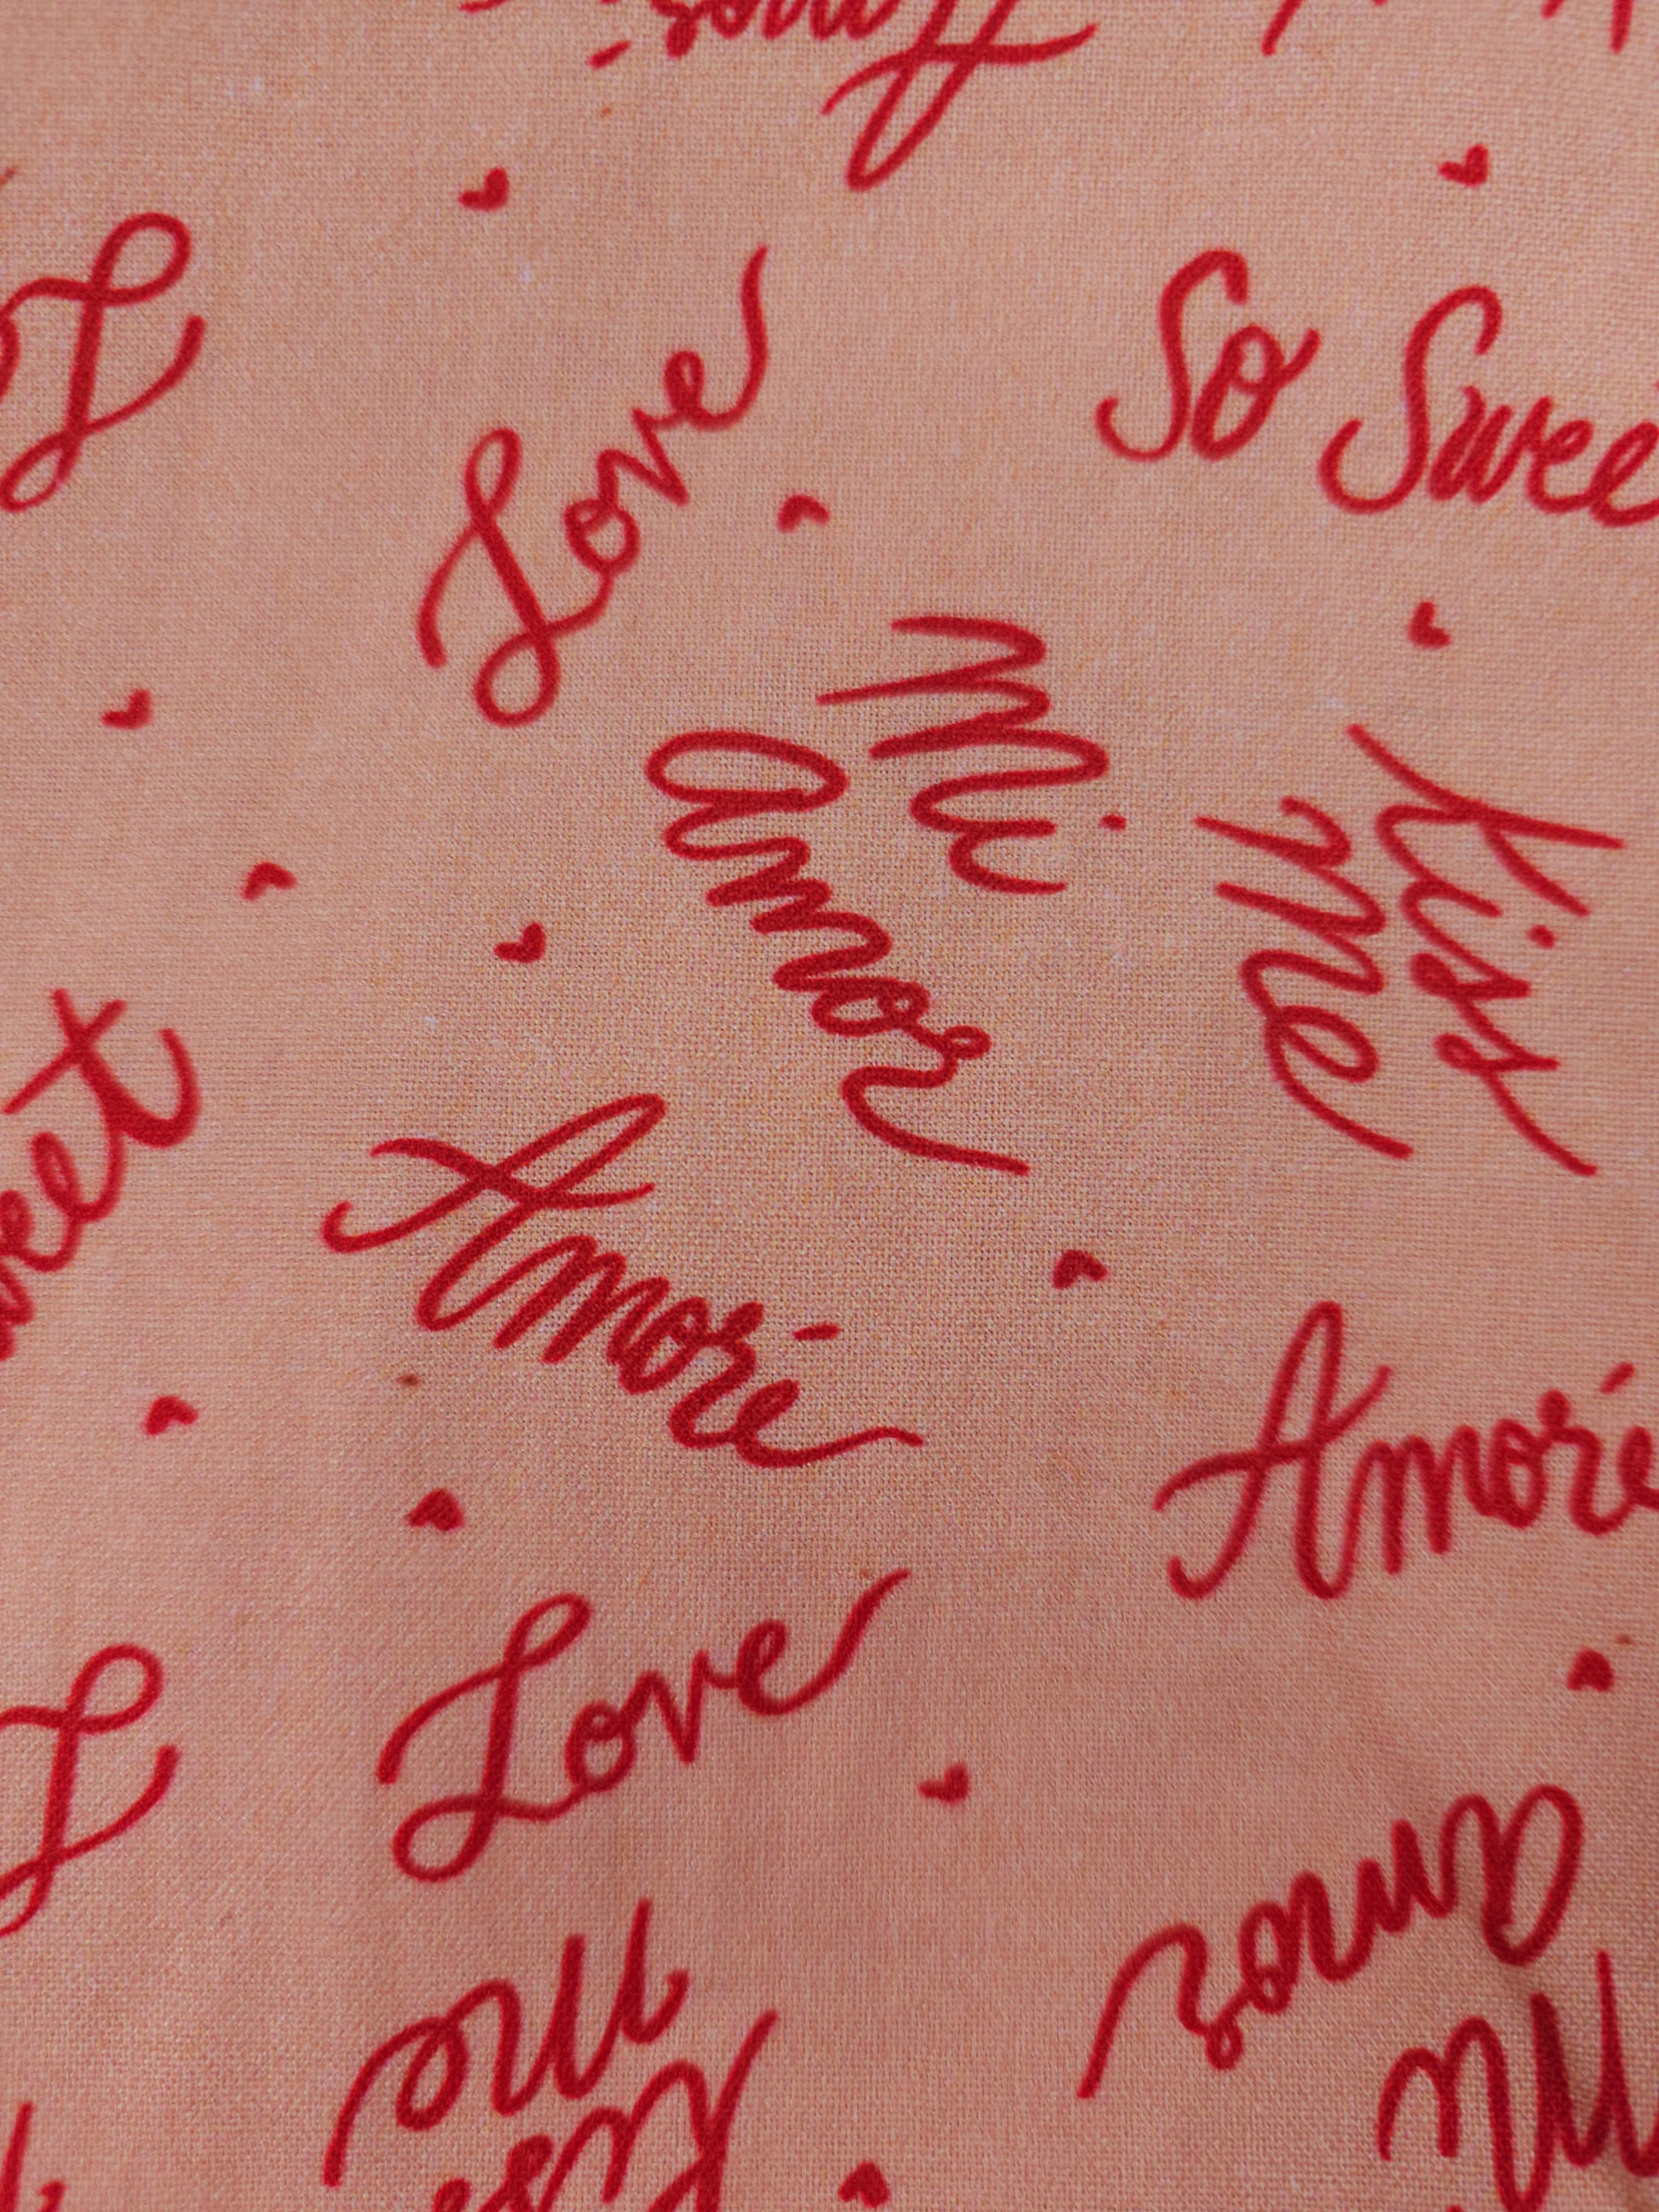 Amoré
L
Love
So Swee
Mi
amor
Kiss
me
weet
Amoré
Amoré
Love
L
amor
Mi
me
Kiss